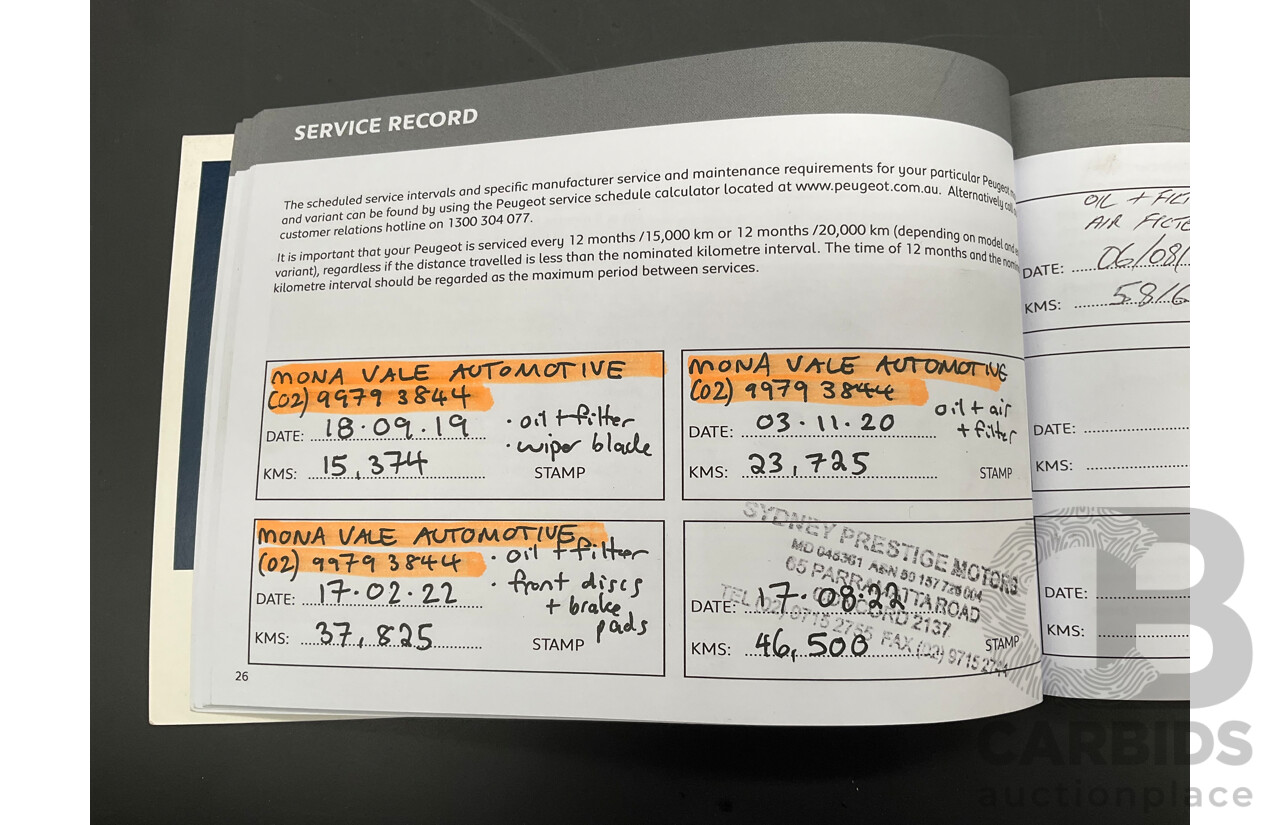 SERVICE RECORD
The scheduled service intervals and specific manufacturer service and maintenance requirements for your particular Peugeot
and variant can be found by using the Peugeot service schedule calculator located at www.peugeot.com.au. Alternatively call
customer relations hotline on 1300 304 077.
It is important that your Peugeot is serviced every 12 months /15,000 km or 12 months /20,000 km (depending on model and
variant), regardless if the distance travelled is less than the nominated kilometre interval. The time of 12 months and the
kilometre interval should be regarded as the maximum period between services.
MONA VALE AUTOMOTIVE
(02) 9979 3844
DATE: 18.09.19
• oil + filter
• wiper blade
KMS: 15,374
STAMP
MONA VALE AUTOMOTIVE
(02) 9979 3844
DATE: 03.11.20
oil + air
+ filter
KMS: 23,725
STAMP
MONA VALE AUTOMOTIVE
(02) 9979 3844
• oil + filter
DATE: 17.02.22
• front discs
+ brake
pads
KMS: 37,825
STAMP
SYDNEY PRESTIGE MOTORS
MD 048361 ABN 80 157 726 004
65 PARRAMATTA ROAD
CONCORD 2137
TEL (02) 9715 2755 FAX (02) 9715
DATE: 17.08.22
KMS: 46,500
STAMP
26
OIL + FILT
AIR
DATE: 06/08/
KMS: 5816
DATE:
KMS:
DATE:
KMS:
CARBIDS
auctionplace